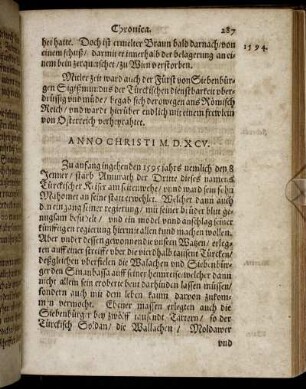 Chronica. 287
het hatte. Doch ist ermelter Braun bald darnach / von
einem schuß / darmit er innerhalb der belägerung an ei-
nem bein zerquätschet / zu Wien verstorben.
1594.
Mitler zeit ward auch der Fürst von Siebenbür-
gen Sigismundus der Türckischen dienstbarkeit vber-
drüssig vnd müde / begab sich derowegen ans Römisch
Reich / vnd wurde hierüber endlich mit einem frewlein
von Osterreich verheyrahtet.
ANNO CHRISTI M. D. XCV.
Zu anfang ingehenden 1595 jahrs nemlich den 8
Jenner / starb Amurath der Dritte dieses namens
Türckischer Keiser am seitenwehe / vnd ward sein sohn
Mahomet an seine statt erwehlet. Welcher dann auch
den eingang seiner regierung / mit seiner brüder blut
besudelt / vnd ein model vnd anschlag seiner
künfftigen regierung hiermit allen kund machen wollen.
Aber vnder dessen gewonnen die vnsern Waitzen / erleg-
ten auff einer streiffe vber die vierdhalb tausent Türcken /
deßgleichen vberfielen die Walachen vnd Siebenbür-
ger den Sinanbassa auff seiner heimreise / welcher dann
nicht allein sein eroberte beut darhinden lassen müssen /
sondern auch mit dem leben kaum darvon zukom-
men vermocht. Ebener massen erlegten auch die
Siebenbürger bey zwölff tausendt Tartern / so der
Türckisch Soldan / die Wallachen / Moldawer
vnd